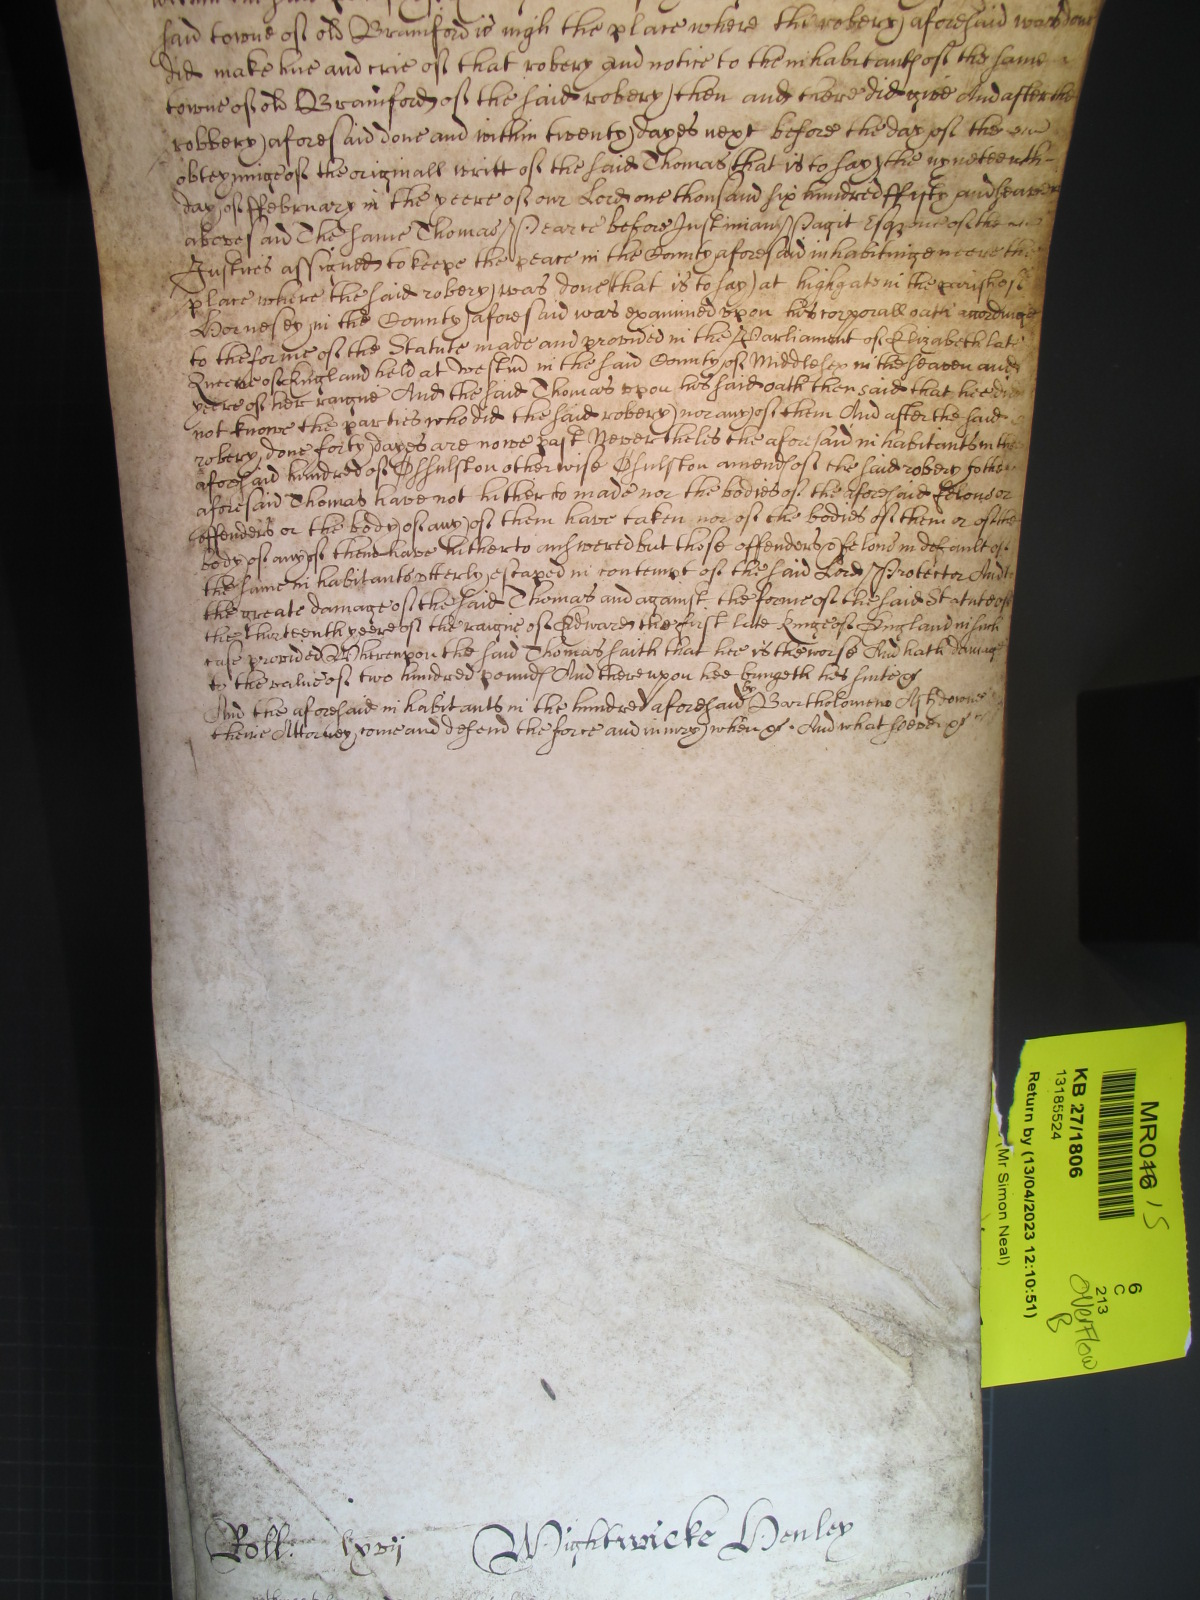 said towne of old Brainford is nigh the place where the robery aforesaid was done
did make hue and crie of that robery and notice to the inhabitants of the same
towne of old Brainford of the said robery then and there did give And after the
robbery aforesaid done and within twenty dayes next before the day of the
obteyninge of the originall writt of the said Thomas that is to say the nyneteenth
day of ffebruary in the yeere of our Lord one thousand six hundred ffifty and seaven
abovesaid The same Thomas Pearce before Justinian Pagit Esquire one of the
Justices assigned to keepe the peace in the County aforesaid inhabitinge neere the
place where the said robery was done that is to say at highgate in the parish of
Hornesey in the County aforesaid was examined upon his corporall oath accordinge
to the forme of the Statute made and provided in the Parliament of Elizabeth late
Queene of England held at Westm in the said County of Middlesex in the seaven and
yeere of her raigne And the said Thomas upon his said oath then said that hee did
not knowe the parties who did the said robery nor any of them And after the said
robery done forty dayes are nowe past Neverthelesse the aforesaid inhabitants in the
aforesaid hundred of Ossulston otherwise Osulston amends of the said robery to the
aforesaid Thomas have not hitherto made nor the bodies of the aforesaid felons or
offenders or the body of any of them have taken nor of the bodies of them or of the
body of any of them have hitherto answered but those offenders & felons in default of
the same inhabitants utterly escaped in contempt of the said Lord Protector And to
the greate damage of the said Thomas and against the forme of the said Statute of
the thirteenth yeere of the raigne of Edward the first late Kinge of England in such
case provided Whereupon the said Thomas saith that hee is the worse And hath damage
to the value of two hundred pounds And thereupon hee bringeth his suite &
And the aforesaid inhabitants in the hundred aforesaid by Bartholomew Ashdowne
theire Attorney come and defend the force and iniury when & And what soever &
Roll: lxvij Wightwicke Henley
MR016 15
KB 27/1806
13185524
Return by (13/04/2023 12:10:51)
(Mr Simon Neal)
6
C
213
Overflow
B